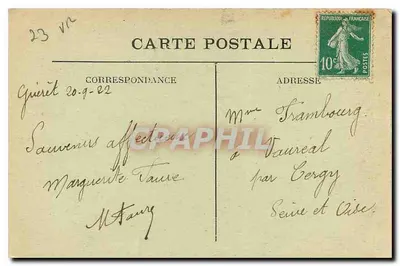 23 VR
CARTE POSTALE
RÉPUBLIQUE FRANÇAISE
10c
POSTES
CORRESPONDANCE
ADRESSE
Guéret 20-9-22
Souvenirs affectueux
Marguerite Faure
MFaure
Mme Frambourg
à Vauréal
par Cergy
Seine et Oise
CPAPHIL